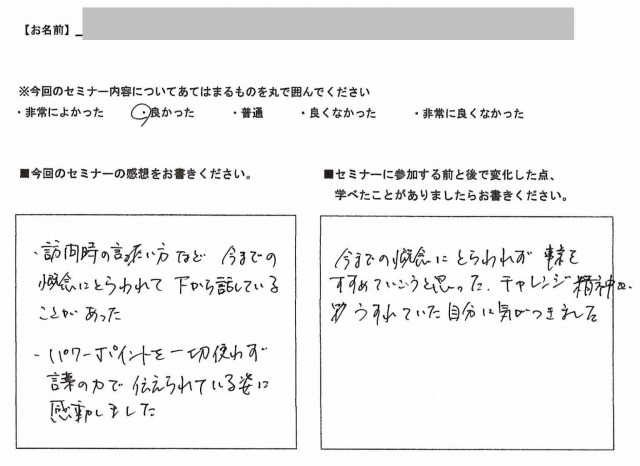 【お名前】
※今回のセミナー内容についてあてはまるものを丸で囲んでください
・非常によかった ・良かった ・普通 ・良くなかった ・非常に良くなかった
■今回のセミナーの感想をお書きください。
・訪問時の言い方など 今までの
概念にとらわれて 下から話している
ことがあった
・パワーポイントを一切使わず
言葉の力で 伝えられている姿に
感動しました
■セミナーに参加する前と後で変化した点、
学べたことがありましたらお書きください。
今までの概念にとらわれず を
すすめていこうと思った。チャレンジ精神
うすれていた自分に気がつきました